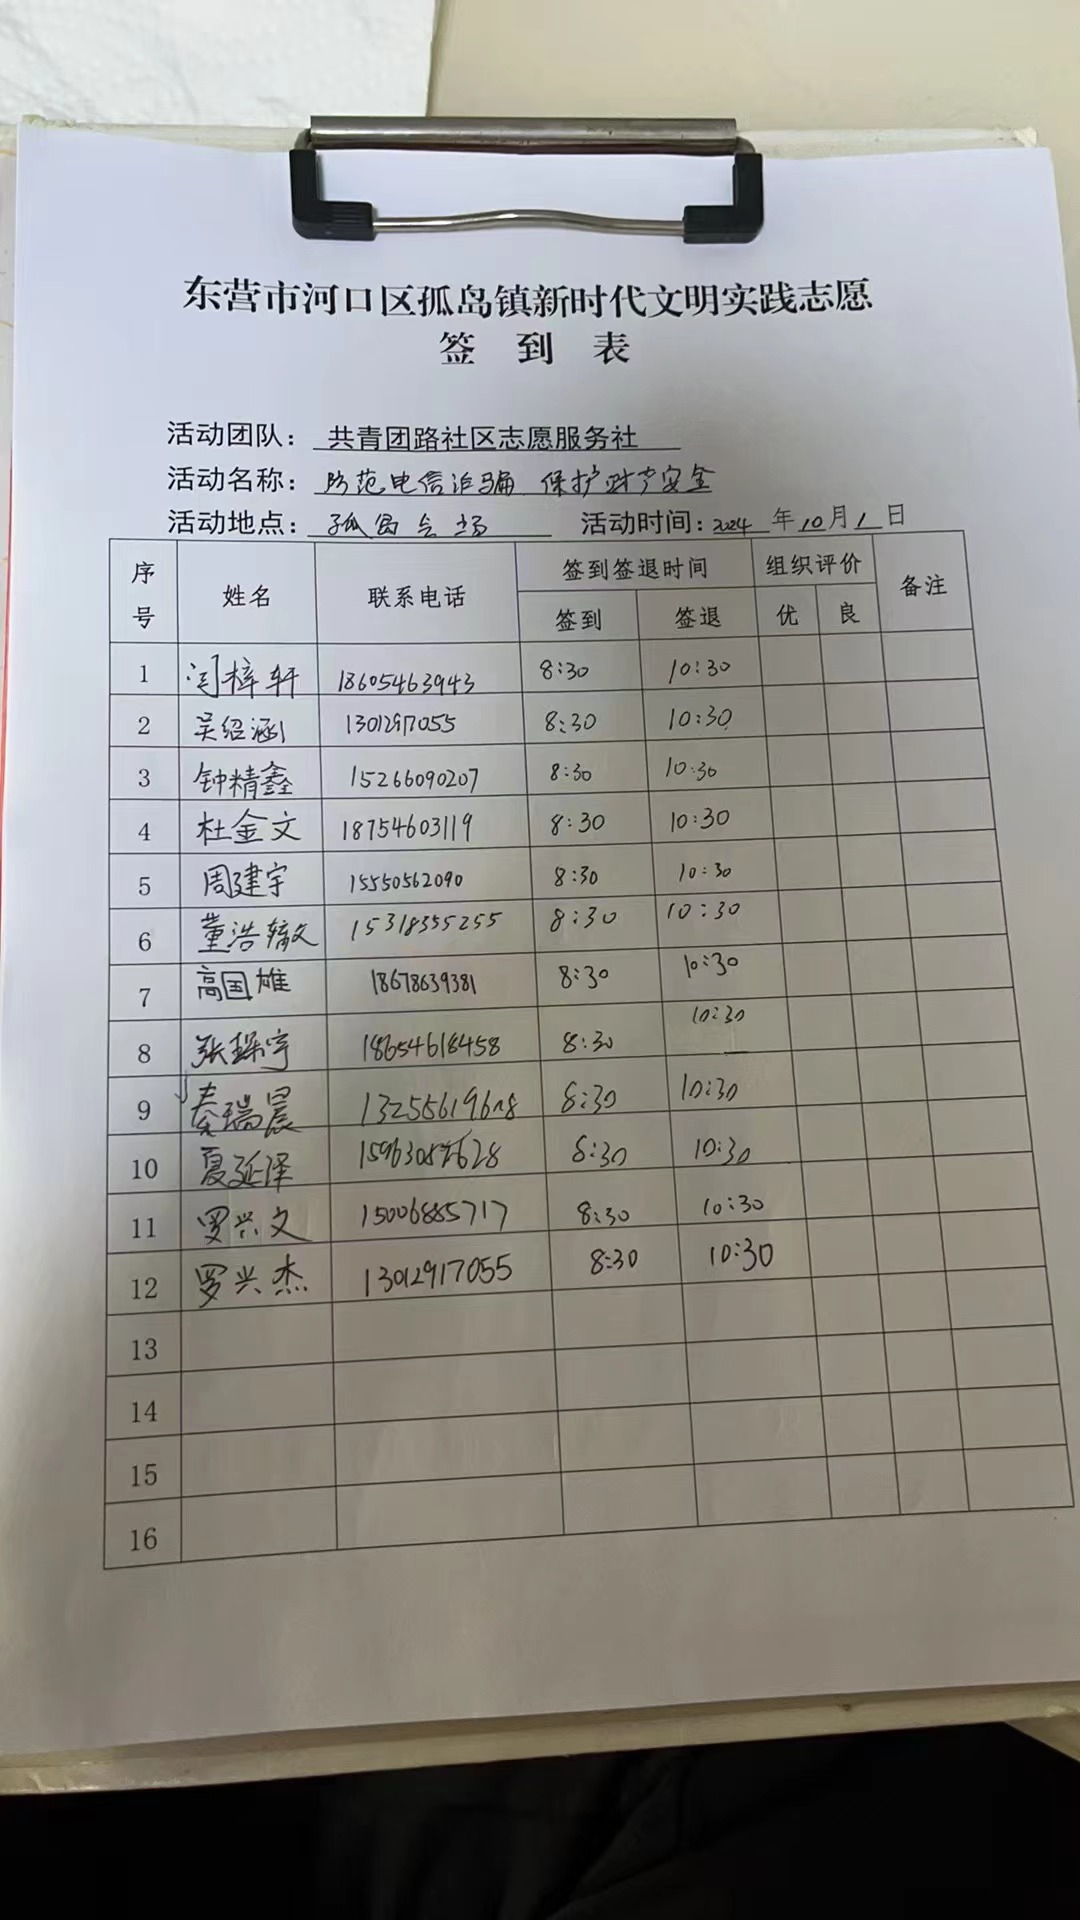 东营市河口区孤岛镇新时代文明实践志愿
签 到 表
活动团队：共青团路社区志愿服务社
活动名称：防范电信诈骗 保护财产安全
活动地点：孤岛会场 活动时间：2024年10月1日
序号 姓名 联系电话 签到签退时间 组织评价 备注
签到 签退 优 良
1 闫梓轩 18605463943 8:30 10:30
2 吴绍涵 13012917055 8:30 10:30
3 钟精鑫 15266090207 8:30 10:30
4 杜金文 18754603119 8:30 10:30
5 周建宇 15550562090 8:30 10:30
6 董浩 15318355255 8:30 10:30
7 高国雄 18678639381 8:30 10:30
8 张琛宇 18654618458 8:30 10:30
9 秦瑞晨 8:30 10:30
10 夏延泽 8:30 10:30
11 罗兴文 15006885717 8:30 10:30
12 罗兴杰 13012917055 8:30 10:30
13
14
15
16